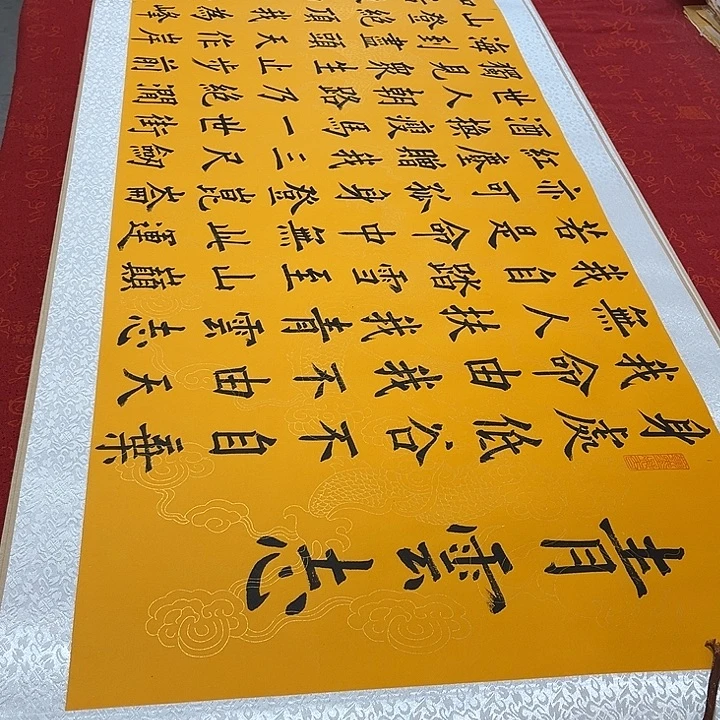 青雲志
身處低谷不自棄
我命由我不由天
無人扶我青雲志
我自踏雪至山巔
若是命中無此運
亦可孤身登崑崙
紅塵贈我三尺劍
酒換瘦馬一世街
世人朝路乃絕澗
獨見眾生止步前
海到盡頭天作岸
山登絕頂我為峰
如